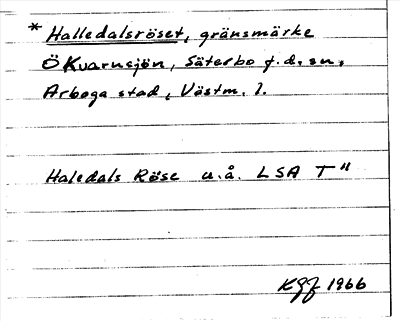 * Halledalsröset, gränsmärke
Ö Kvarnsjön, Säterbo f.d. sn,
Arboga stad, Västm. l.
Haledals Röse u.å. LSA T"
KGF 1966